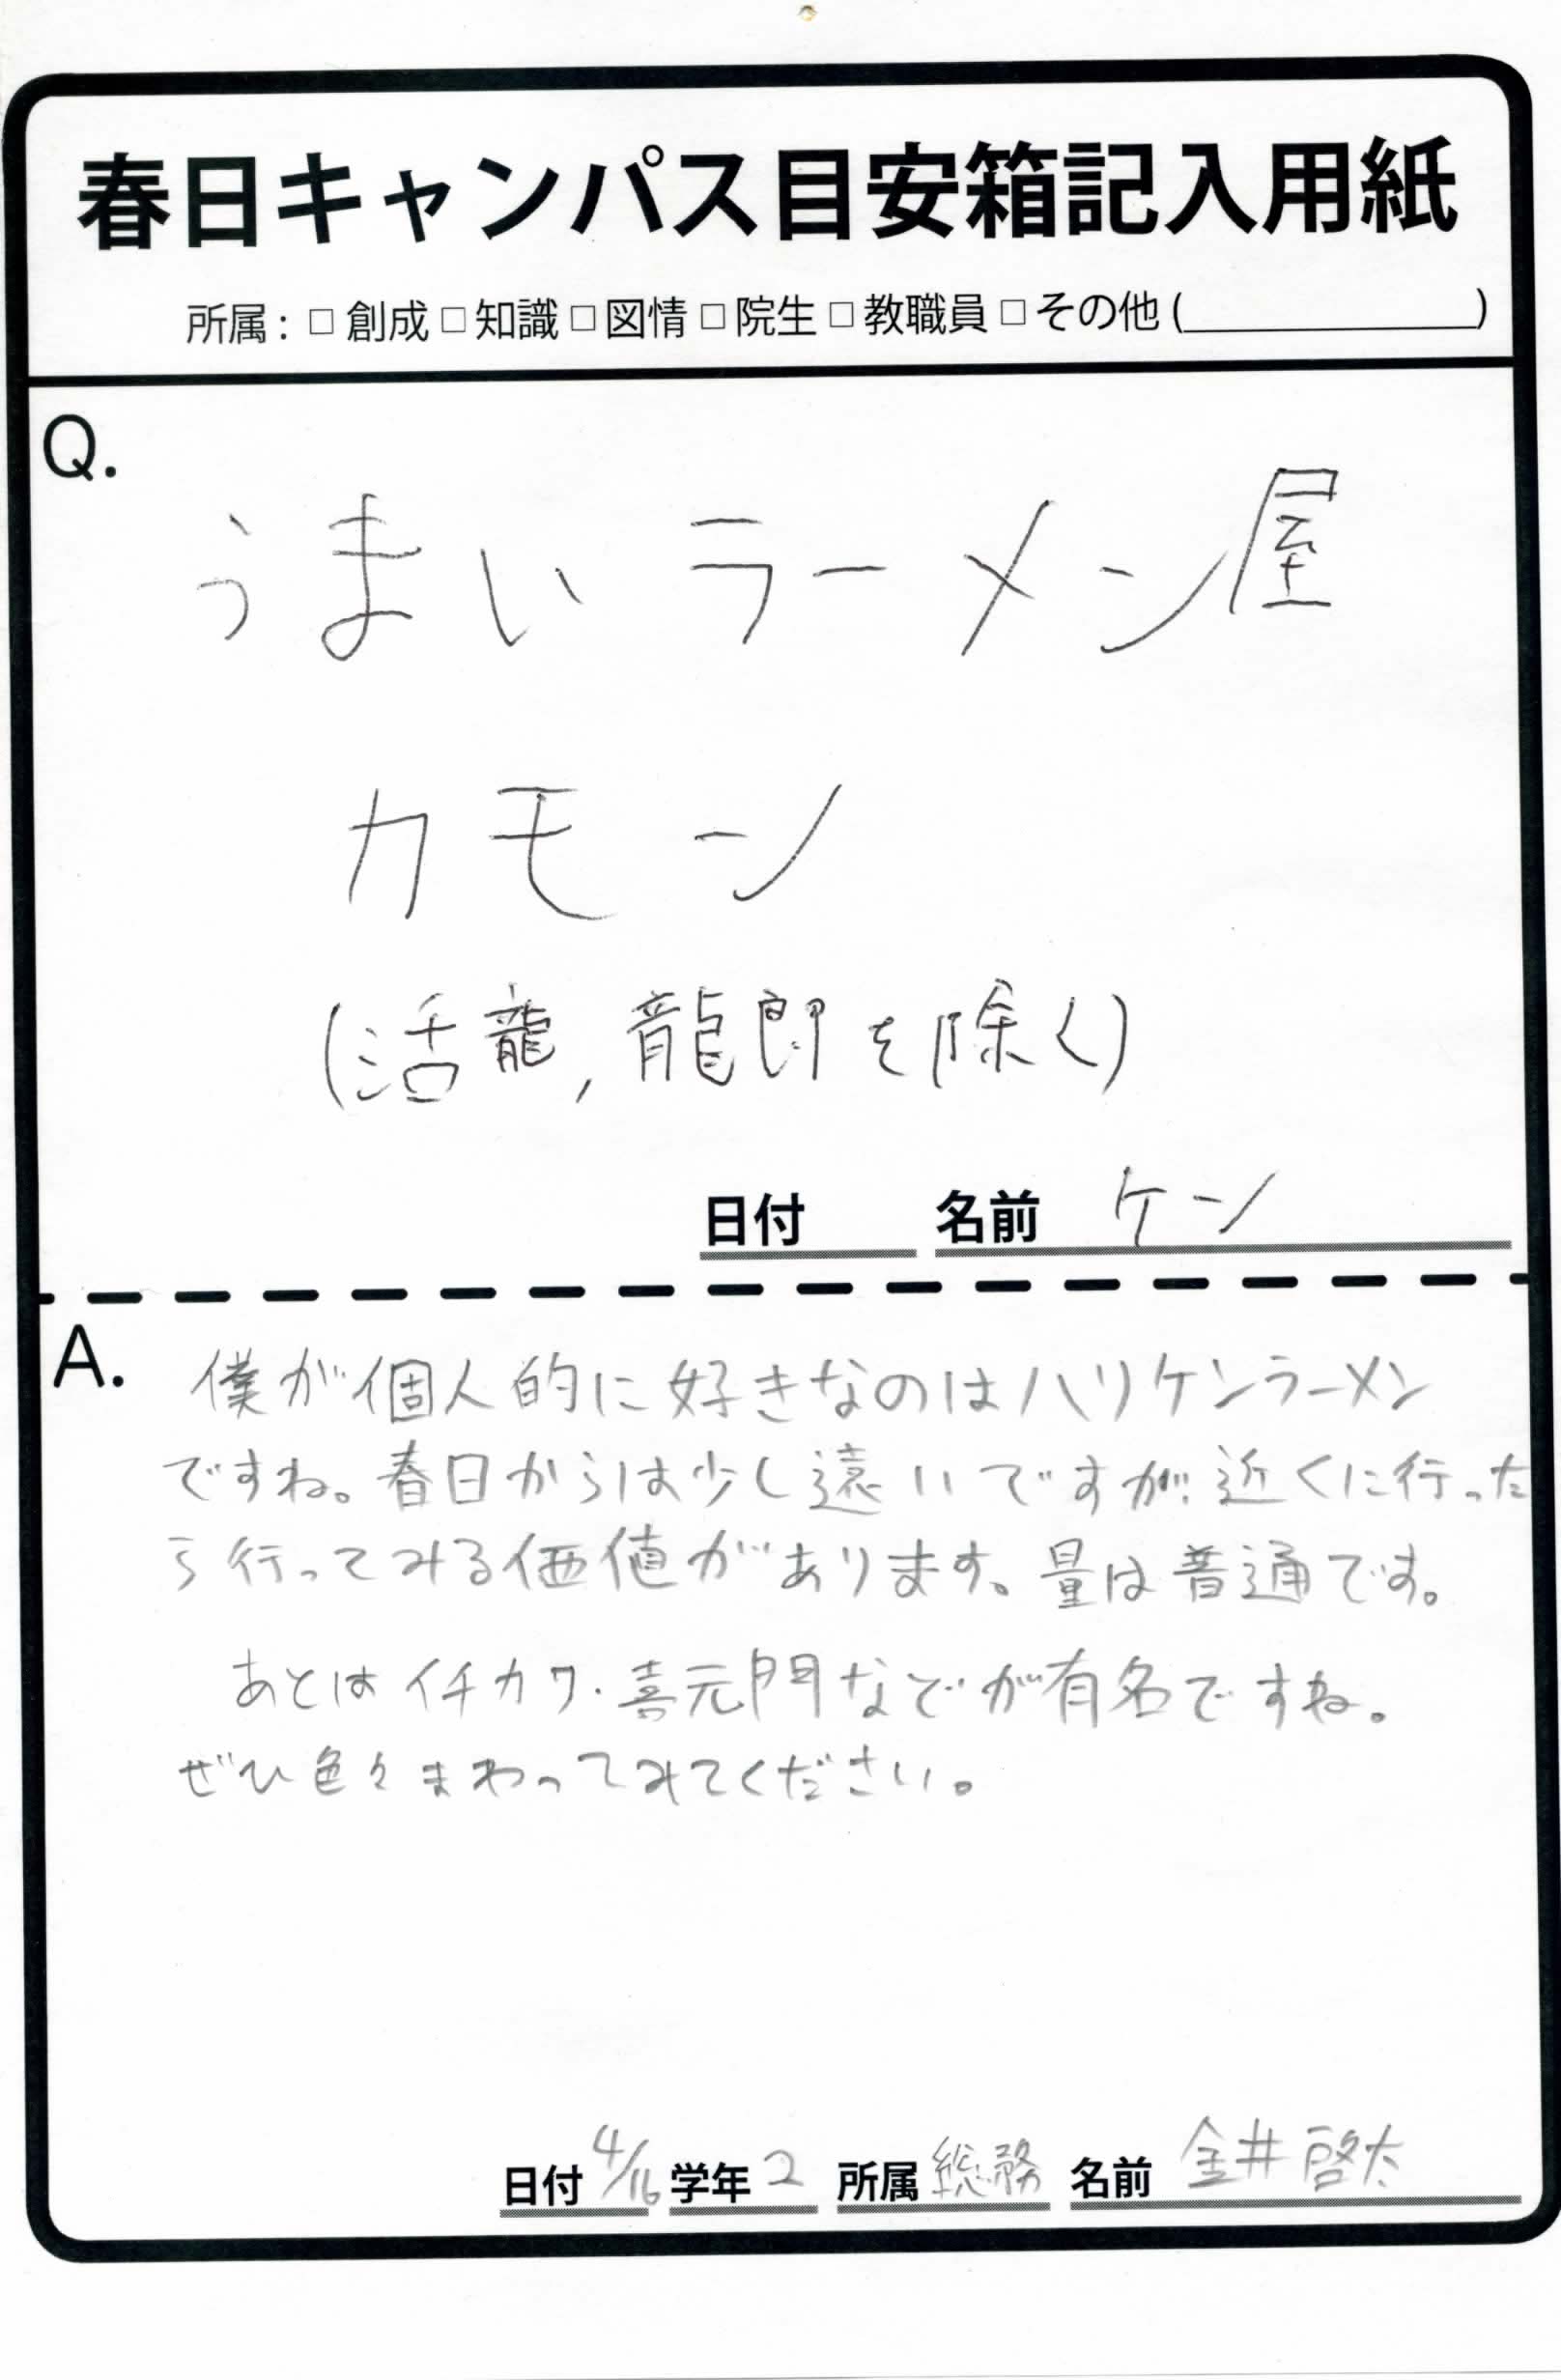 春日キャンパス目安箱記入用紙
所属: □ 創成 □ 知識 □ 図情 □ 院生 □ 教職員 □ その他 (　　　　)
Q.
うまいラーメン屋
カモン
(活龍, 龍郎を除く)
日付 名前 ケン
A. 僕が個人的に好きなのはハリケンラーメン
ですね。春日からは少し遠いですが、近くに行った
ら行ってみる価値があります。量は普通です。
あとはイチカワ・喜元門などが有名ですね。
ぜひ色々まわってみてください。
日付 4/16 学年 2 所属 総務 名前 金井啓太